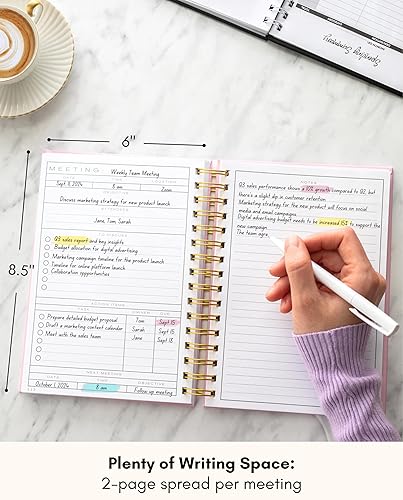 6"
8.5"
MEETING Weekly Team Meeting
LOCATION
Sept 11, 2024 8 am Zoom
OBJECTIVE
Discuss marketing strategy for new product launch
Jane, Tom, Sarah
Q3 sales report and key insights
Budget allocation for digital advertising
Marketing campaign timeline for the product launch
Timeline for online platform launch
Collaboration opportunities
ACTION ITEMS
TASK OWNER DUE
Prepare detailed budget proposal Tom Sept 15
Draft a marketing content calendar Sarah Sept 15
Meet with the sales team Jane Sept 18
NEXT MEETING
DATE TIME OBJECTIVE
October 1, 2024 8 am Follow up meeting
NOTES
Q3 sales performance shows a 10% growth compared to Q2, but
there's a slight dip in customer retention
Marketing strategy for the new product will focus on social
media and email campaigns
Digital advertising budget needs to be increased 15% to support the
new campaign
The team agre
Plenty of Writing Space:
2-page spread per meeting